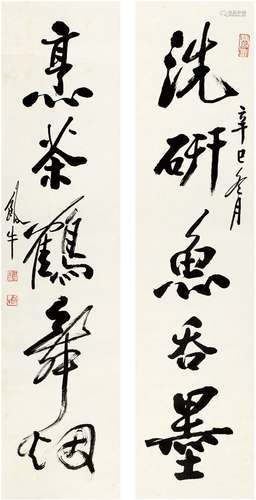 洗研魚吞墨
辛巳冬月
烹茶鶴舞烟
牛